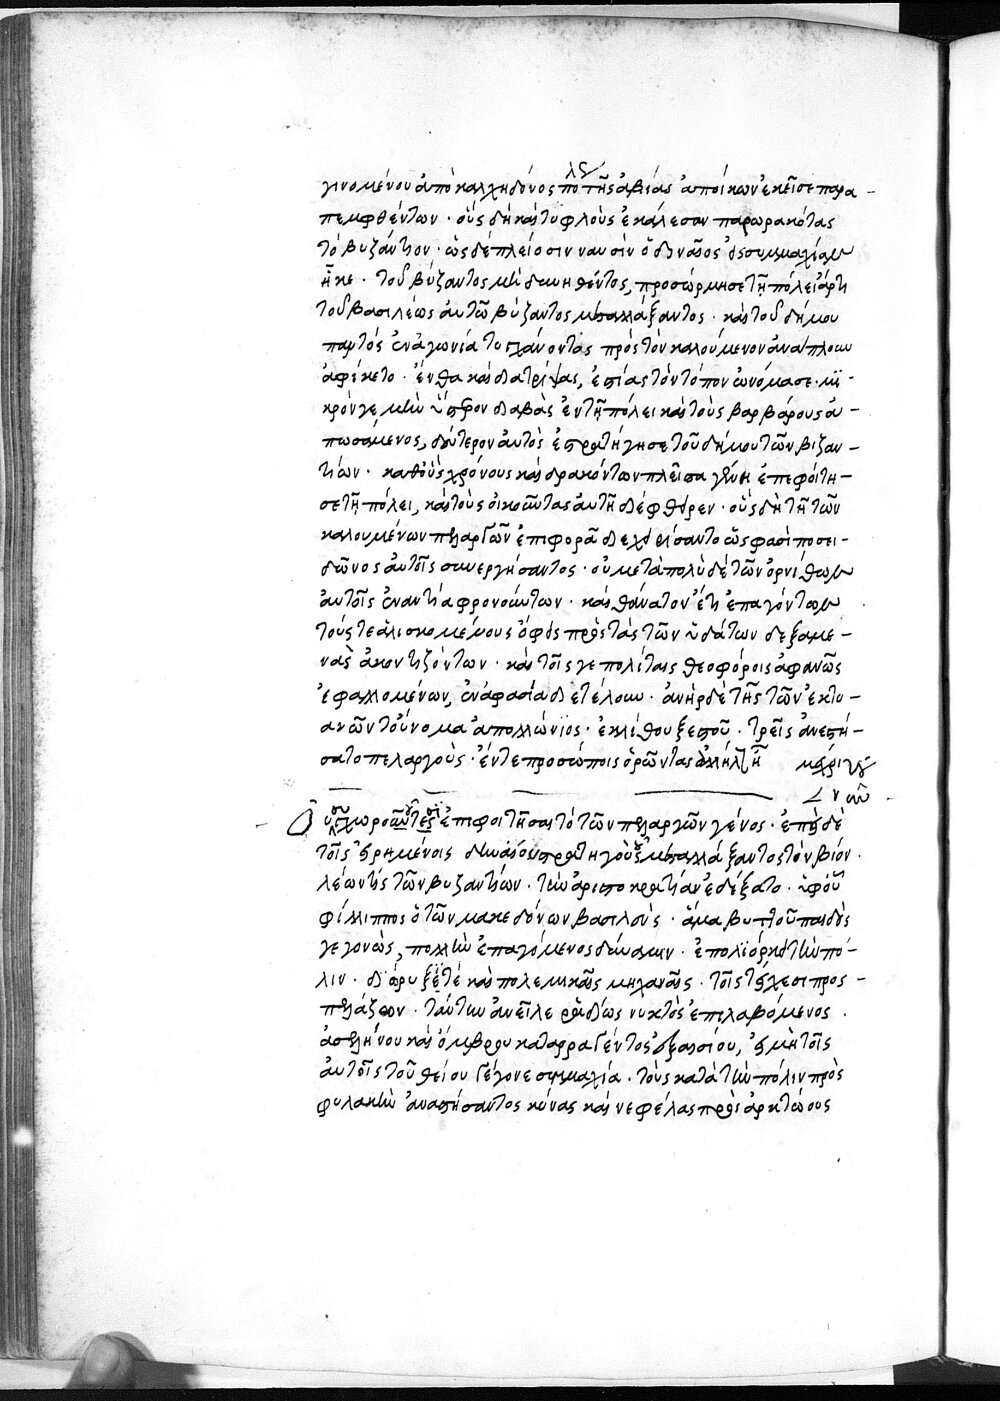 γινομένου ἀπὸ καλχηδόνος πο τῆς ἀβίας ἀποίκων ἐκεῖσε παρα
πεμφθέντων · οὓς δὴ καὶ τυφλοὺς ἐκάλεσαν παρωρακότας
τὸ βυζάντιον · ὡς δὲ πλείοσιν ναυσὶν ὁ δίναιος εἰς συμμαχίαν
ἧκε · τοῦ βύζαντος μὴ δυνηθέντος, προσώρμησε τῇ πόλει ἄρτι
τοῦ βασιλέως αὐτῶ βύζαντος μεταλλάξαντος · καὶ τοῦ δήμου
παντός ἐν ἀγωνία τυγχάνοντος πρὸς τὸν καλούμενον ἀνάπλουν
ἀφίκετο · ἔνθα καὶ διατρίψας, ἑστίας τὸν τόπον ὠνόμασε · μι
κρόν γε μὴν ὕστερον διαβὰς ἐν τῇ πόλει καὶ τοὺς βαρβάρους ἀ
πωσάμενος, δεύτερον αὐτὸς ἐστρατήγησε τοῦ δήμου τῶν βιζαν
τίων · καθ' οὓς χρόνους καὶ δρακόντων πλεῖστα γένη ἐπεφοίτη
σε τῇ πόλει, καὶ τοὺς οἰκοῦντας αὐτῇ διέφθειρεν · οὓς δὴ τῇ τῶν
καλουμένων πελαργῶν ἐπιφορᾶ διεχειρίσαντο ὥς φασι ποσει
δῶνος αὐτοῖς συνεργήσαντος · οὐ μετὰ πολὺ δὲ τῶν ὀρνίθων
αὐτοῖς ἐναντία φρονούντων · καὶ θάνατον ἔτι ἐπαγόντων
τούς τε ἁλισκομένους ὄφεις πρὸς τὰς τῶν ὑδάτων δεξαμε
νὰς ἀκοντιζόντων · καὶ τοῖς γε πολίταις θεοφόροις ἀφανῶς
ἐφαλλομένων, ἐν ἀφασία διετέλουν · ἀνὴρ δέ τις τῶν ἐκ τυ
ανῶν τοὔνομα ἀπολλώνιος · ἐκ λίθου ξεστοῦ · τρεῖς ἀνεστή
σατο πελαργοὺς · ἔν τε προσώποις ὁρῶντας ἀλλήλοις
Οὐ συγχωροῦντες ἐπιφοιτῆσαι τὸ τῶν πελαργῶν γένος · ἐπεὶ δὲ
τοῖς εἰρημένοις δινέου στρατηγοῦ μεταλλάξαντος τὸν βίον ·
λέων τις τῶν βυζαντίων · τὴν ἀριστοκρατίαν ἐδέξατο · ὑφ' οὗ
φίλιππος ὁ τῶν μακεδόνων βασιλεὺς · ἀμύντου παιδὸς
γεγονὼς, πολλὴν ἐπαγόμενος δύναμιν · ἐπολιόρκει τὴν πό
λιν · διόρυξέ τε καὶ πολεμικαῖς μηχαναῖς · τοῖς τείχεσι προς
πελάζων · ταύτην ἀνεῖλε ραδίως νυκτὸς ἐπιλαβόμενος ·
ἀσελήνου καὶ ὄμβρου καταρραγέντος ἐξαισίου, εἰ μὴ τοῖς
αὐτοῖς τοῦ θείου γέγονε συμμαχία · τοὺς κατὰ τὴν πόλιν πρὸς
φυλακὴν ἀναστήσαντος κύνας καὶ νεφέλας πρὸς ἀρκτώους